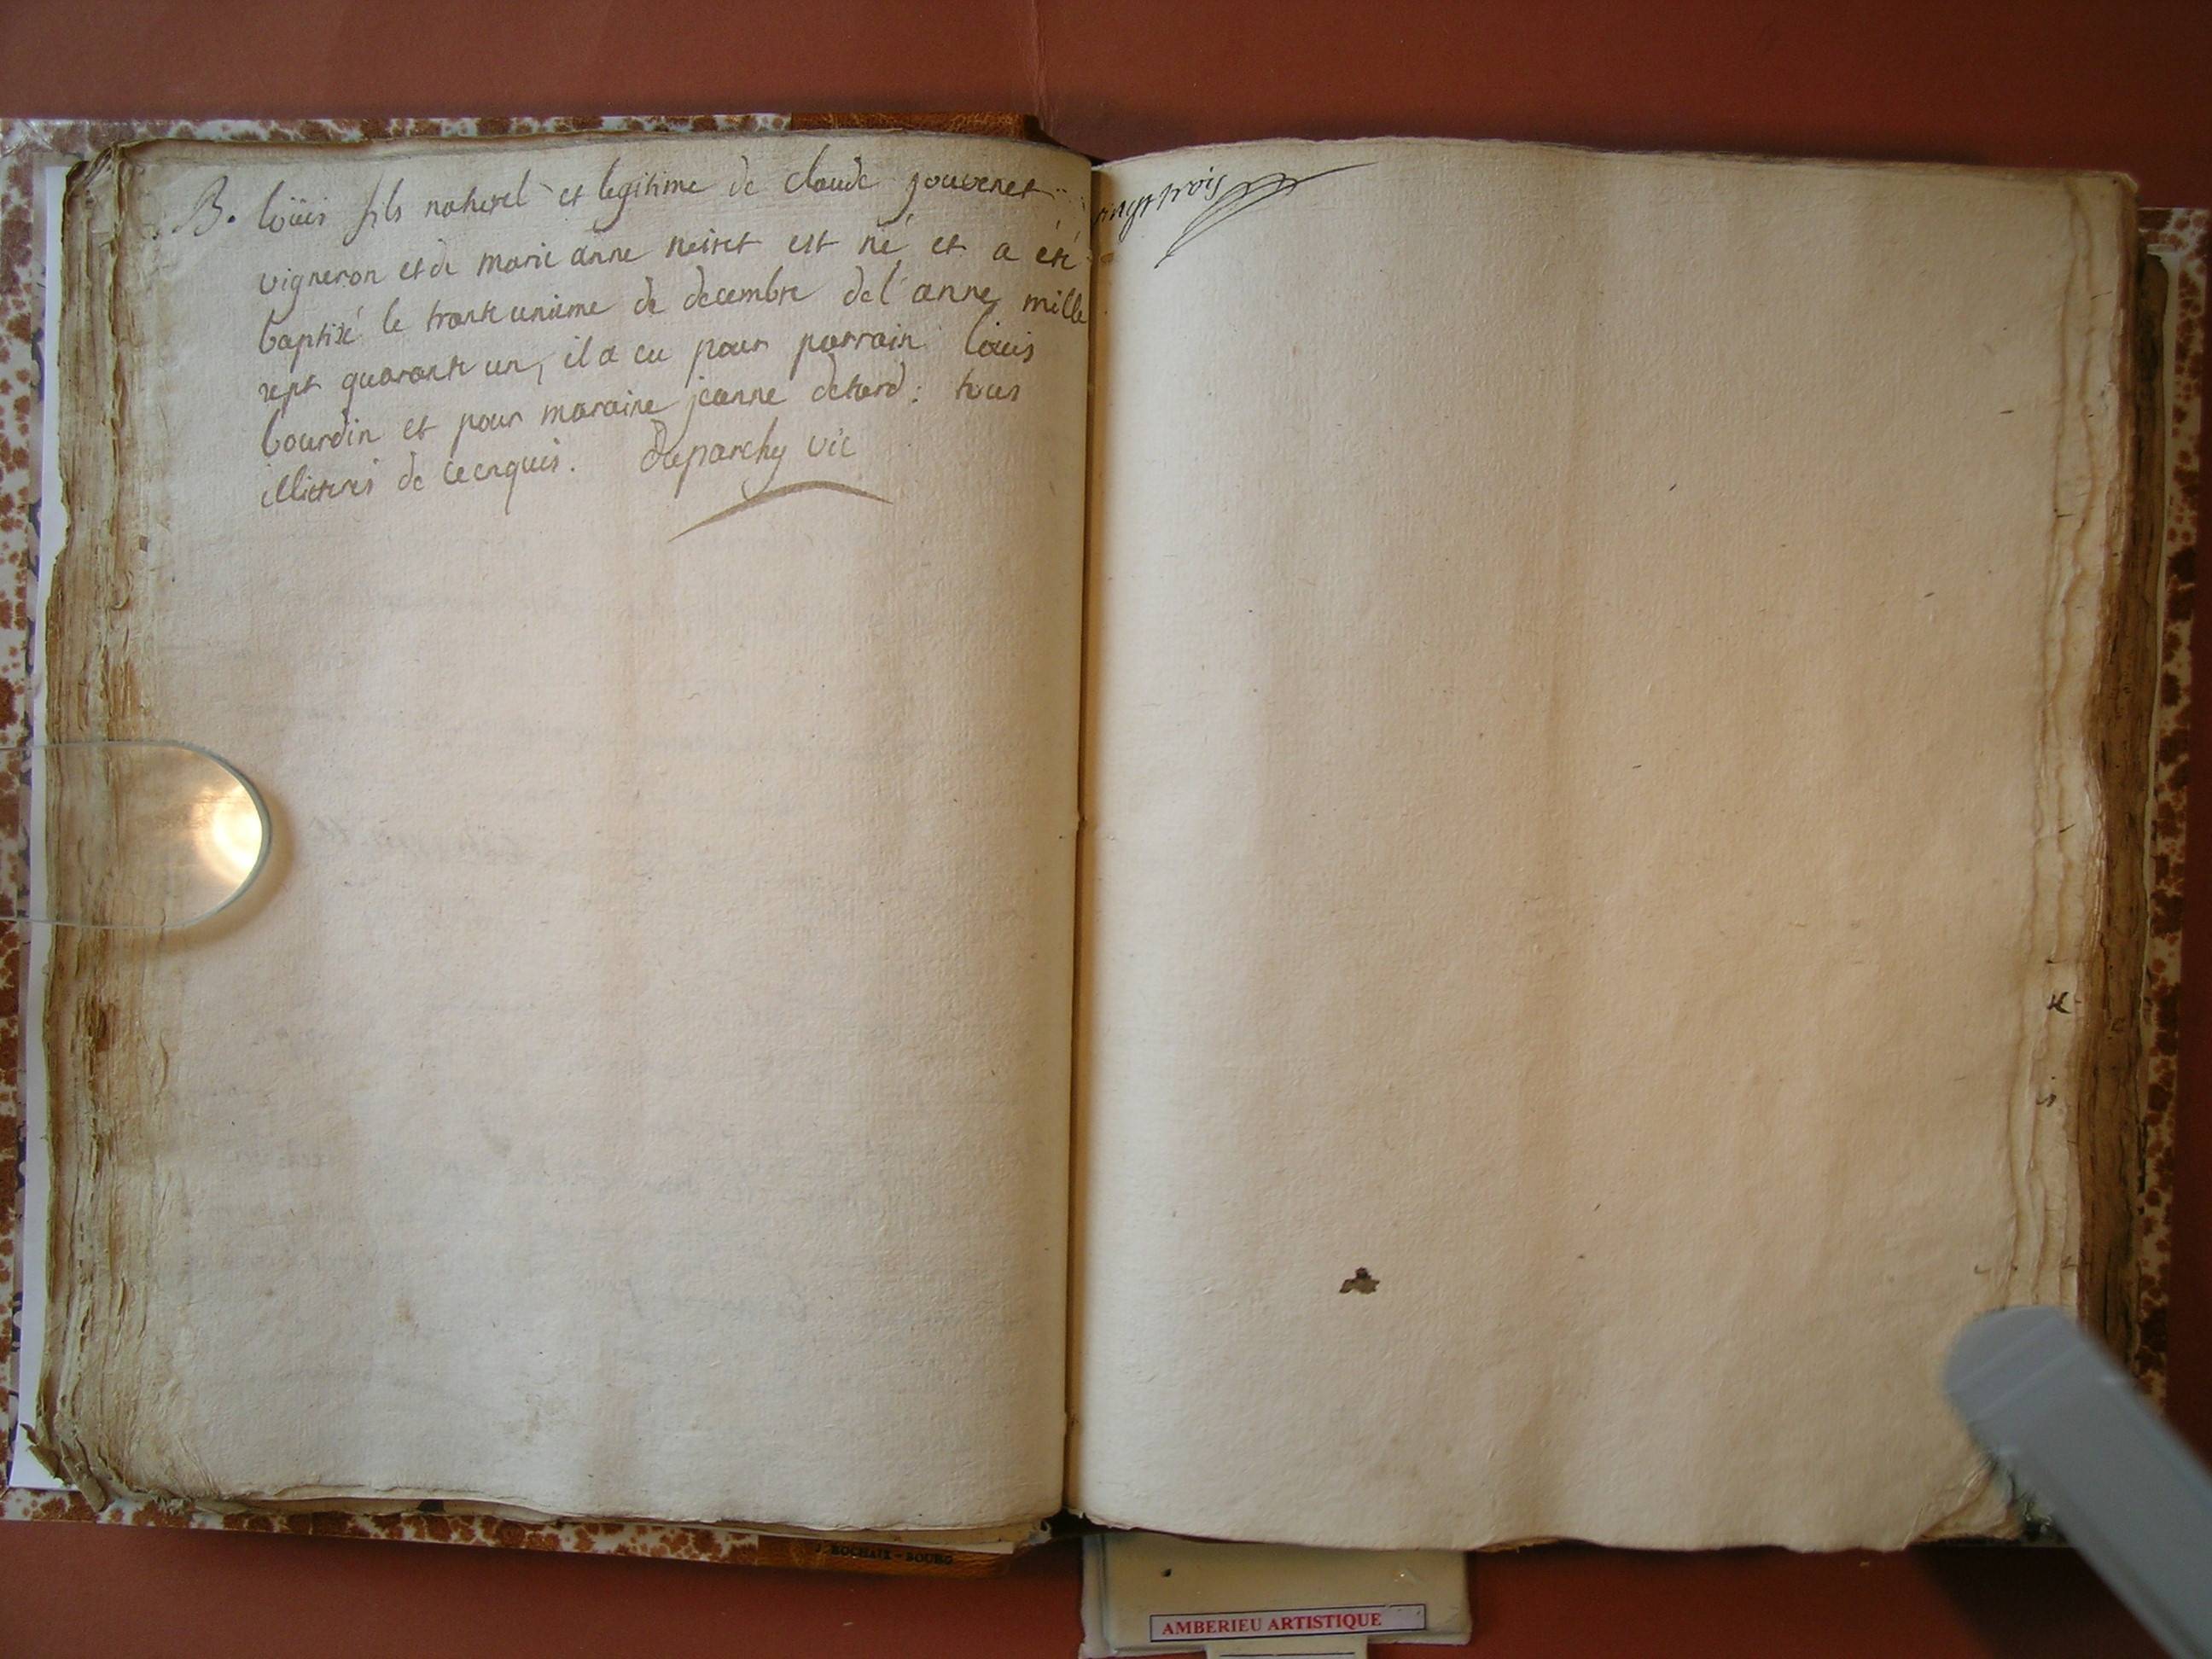 B. loüis fils naturel et legitime de claude jouvenet
vigneron et de marie anne neiret est né, et a été
baptisé le trante unieme de decembre de l'anne mille
sept quarante un, il a eu pour parrain loüis
bourdin et pour maraine jeanne detard : tous
illiterés de ce enquis. Duparchy vic
vingt trois
J. ROCHAIX - BOURG
AMBERIEU ARTISTIQUE